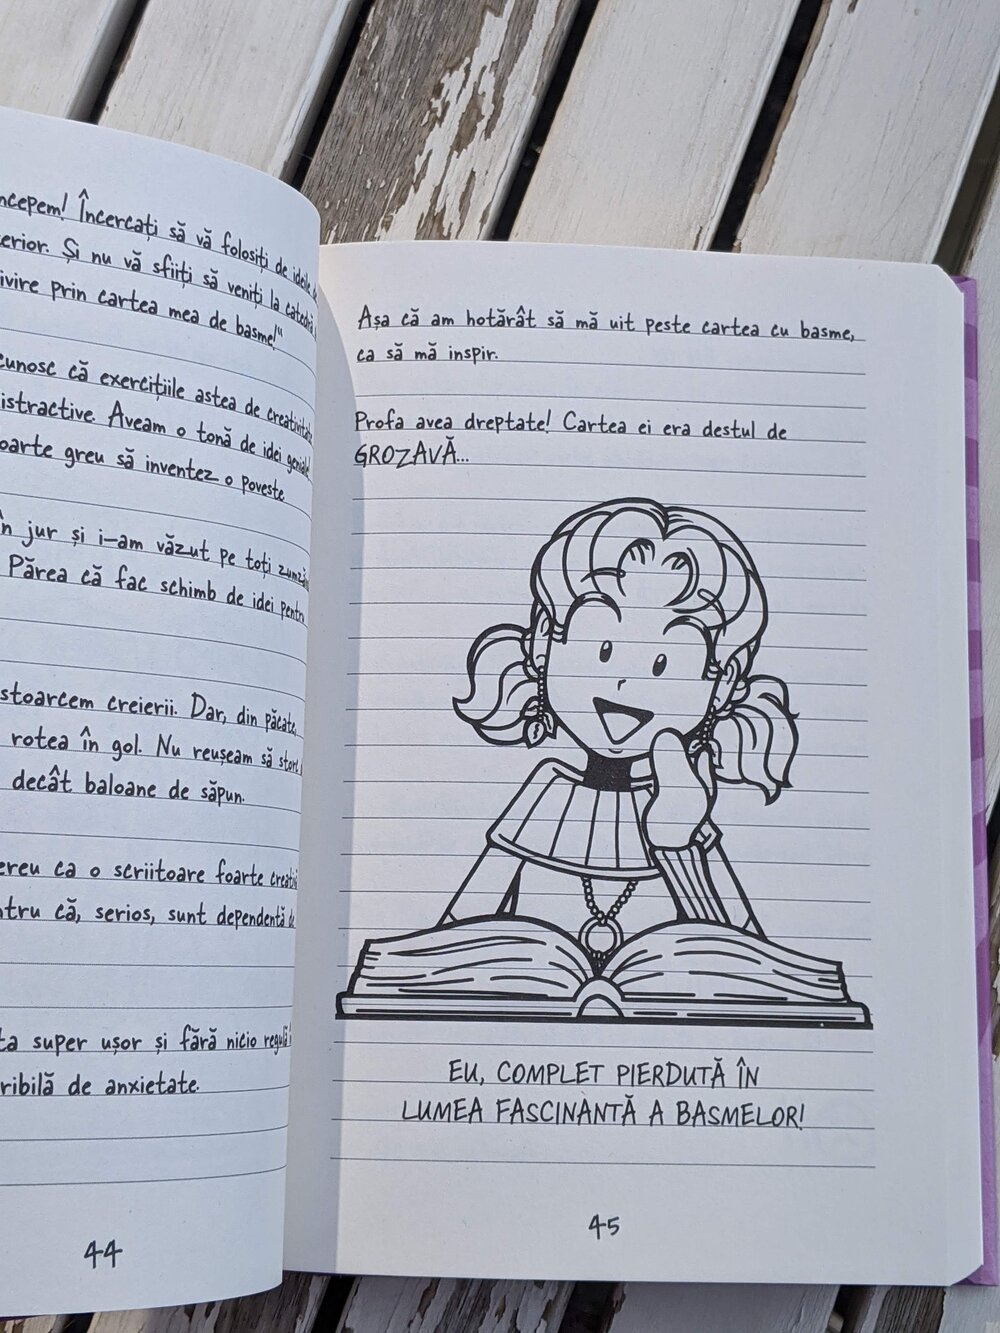 Încercați să vă folosiți de ideile
Și nu vă sfiiți să veniți la catedră
prin cartea mea de basme!"
că exercițiile astea de
Aveam o tonă de idei geniale
greu să inventez o poveste
În jur și i-am văzut pe toți
Părea că fac schimb de idei pentru
stoarcem creierii. Dar, din păcate,
rotea în gol. Nu reușeam să storc
decât baloane de săpun.
ca o scriitoare foarte
că, serios, sunt dependentă de
super ușor și fără nicio regulă
de anxietate.
44
Așa că am hotărât să mă uit peste cartea cu basme,
ca să mă inspir.
Profa avea dreptate! Cartea ei era destul de
GROZAVĂ...
EU, COMPLET PIERDUTĂ ÎN
LUMEA FASCINANTĂ A BASMELOR!
45